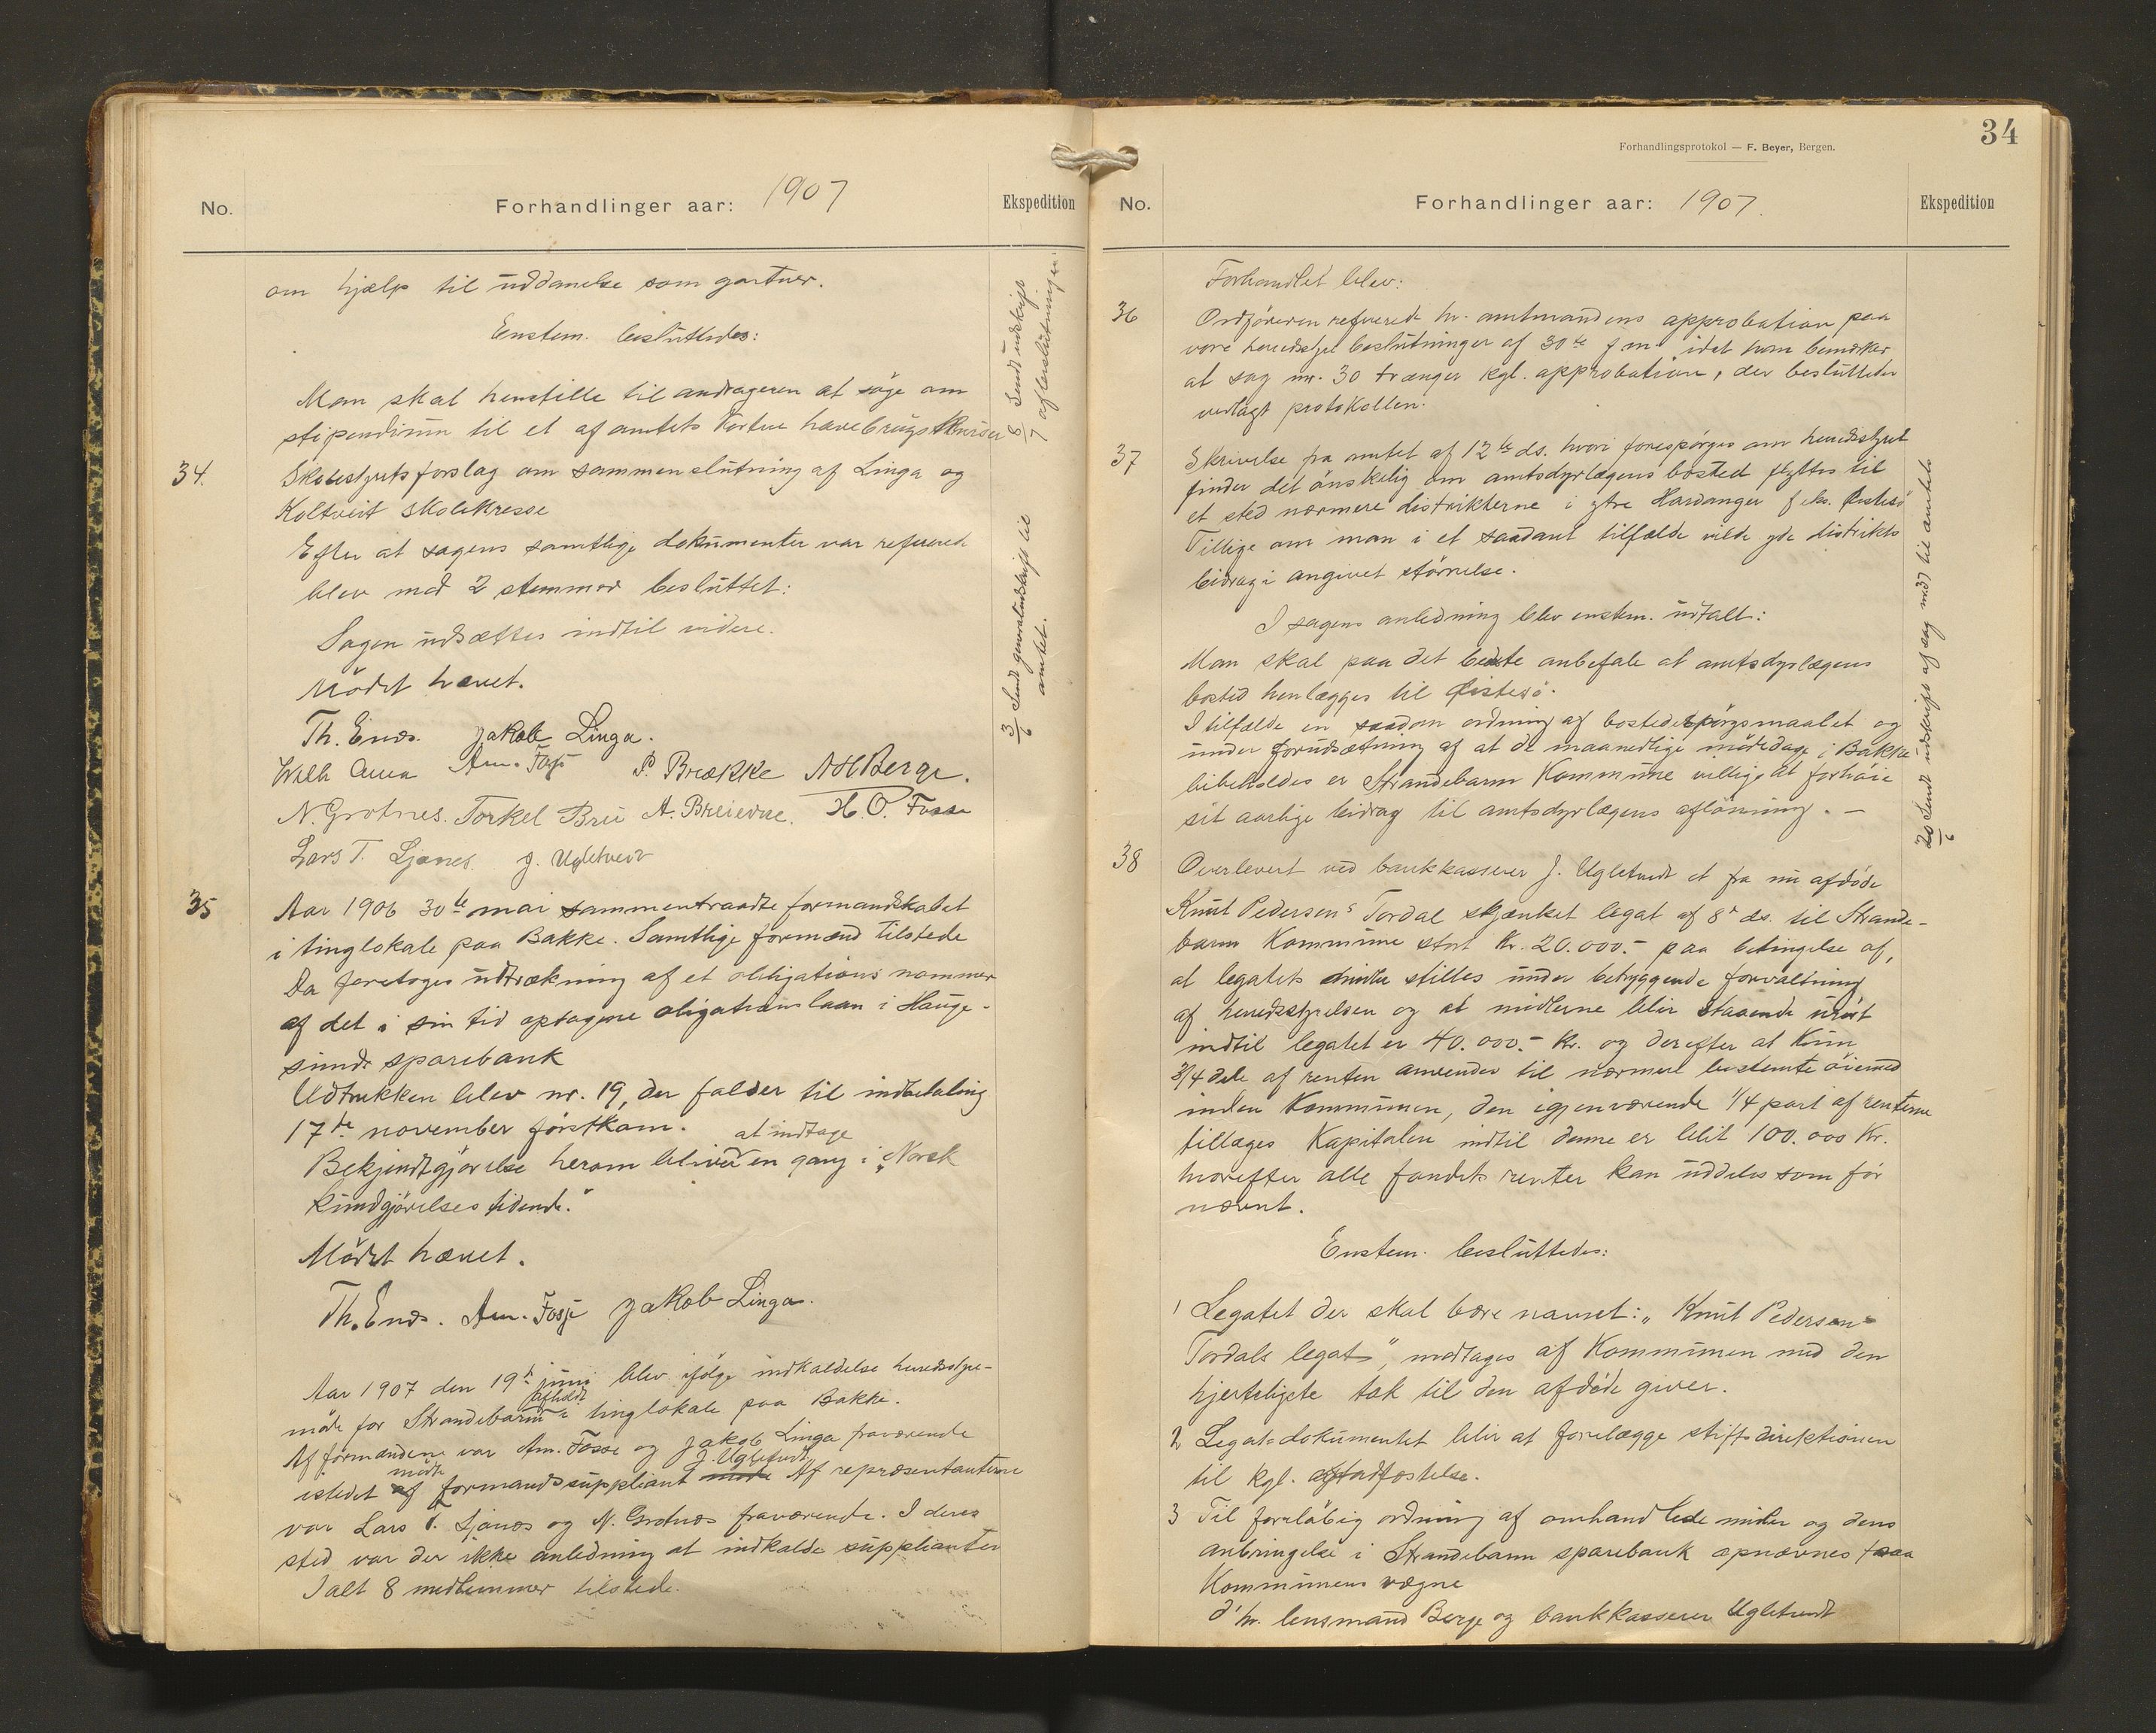 No.
Forhandlinger aar: 1907
Ekspedition
om hjælp til uddanelse som gartner.
Enstem. besluttedes:
Man skal henstille til andrageren at søge om
stipendium til et af amtets kortere havebrugskurser
8/7 Sendt udskrift
af beslutningen.
34.
Skolestyrets forslag om sammenslutning af Linga og
Koltveit skolekresse
Efter at sagens samtlige dokumenter var refereret
blev med 2 stemmer besluttet:
Sagen udsættes indtil videre.
Mødet hævet.
3/6 Sendt generaludskrift til
amtet.
Th. Enes. Jakob Linga.
Am. Fosse P. Brække A H Berge.
N. Grotnes. Torkel Bru A. Breievne. H. O. Fosse
Lars T. Ljones. J. Ugletveit
35
Aar 1906 30te mai sammentraadte formandskabet
i tinglokale paa Bakke. Samtlige formænd tilstede
Da foretoges udtrækning af et obligations nommer
af det i sin tid optagene obligationslaan i Hauge-
sunds sparebank
Udtrukken blev nr. 19, der falder til indbetaling
17de november førstkom.
at indtage
Bekjendtgjørelse herom bliver en gang i „Norsk
kundgjørelses tidende."
Mødet hævet.
Th. Enes. Am. Fosse Jakob Linga.
Aar 1907 den 19de juni blev ifølge indkaldelse herredsstyre-
afholdt
møde for Strandebarm i tinglokale paa Bakke.
Af formændene var Am. Fosse og Jakob Linga fraværende
mødte J. Ugletveit
istedet af formandssuppliant møde Af repræsentanterne
var Lars T. Ljones og N. Grotnes fraværende. I deres
sted var der ikke anledning at indkalde supplianter
Ialt 8 medlemmer tilstede.
34
Forhandlingsprotokol — F. Beyer, Bergen.
No.
Forhandlinger aar: 1907.
Ekspedition
Forhandlet blev:
36
Ordføreren refererede hr. amtmandens approbation paa
vore herredsstyrebeslutninger af 30te f.m. idet han bemærker
at sag nr. 30 trænger kgl. approbation, der besluttedes
vedlagt protokollen.
37
Skrivelse fra amtet af 12te ds. hvori forespørges om herredsstyret
finder det ønskelig om amtsdyrlægens bosted flyttes til
et sted nærmere distrikterne i ytre Hardanger f.eks. Østesø
Tillige om man i et saadant tilfælde vilde yde distrikts
bidrag i angivet størrelse.
I sagens anledning blev enstem. udtalt:
Man skal paa det bedste anbefale at amtsdyrlægens
bosted henlægges til Østesø.
I tilfælde en saadan ordning af bostedsspørgsmaalet og
under forudsætning af at de maanedlige mødedage i Bakke
bibeholdes er Strandebarm Kommune villig at forhøie
sit aarlige bidrag til amtsdyrlægens aflønning. —
20/6 Sendt udskrift af sag nr 37 til amtet
38
Overlevert ved bankkasserer J. Ugletveit et fra nu afdøde
Knut Pedersens Tordal skjænket legat af 8de ds. til Strande-
barm Kommune stort Kr. 20.000.- paa betingelse af,
at legatets midler stilles under betryggende forvaltning
af herredsstyrelsen og at midlerne blir staaende urørt
indtil legatet er 40.000.- Kr. og derefter at kun
3/4 dele af renten anvendes til nærmere bestemte øiemed
inden Kommunen, den igjenværende 1/4 part af renterne
tillæges Kapitalen indtil denne er blit 100.000 Kr.
hvorefter alle fondets renter kan uddeles som før
nævnt.
Enstem. besluttedes:
1 Legatet der skal bære navnet: „Knut Pedersen
Tordals legat", modtages af Kommunen med den
hjerteligste tak til den afdøde giver.
2 Legatsdokumentet blir at forelægge stiftsdirektionen
til kgl. stadfæstelse.
3 Til foreløbig ordning af omhandlede midler og dens
anbringelse i Strandebarm sparebank opnævnes paa
Kommunens vegne
d'hr. lensmand Berge og bankkasserer Ugletveit